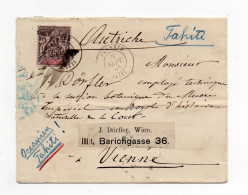 Autriche
Tahiti
Monsieur
Dörfler employé technique
à la section botanique du Musée
Impérial
d'histoire
naturelle de la Cour
J. Dörfler, Wien.
III, Barichgasse 36.
à
Vienne
Océanie
Tahiti